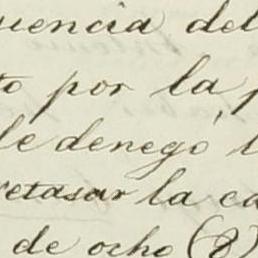 uencia del
to por la p
le denegó l
retasar la ca
de ocho (8)